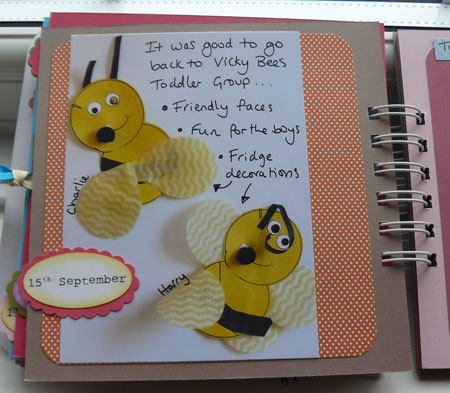 It was good to go
back to Vicky Bees
Toddler Group...
• Friendly faces
• Fun for the boys
• Fridge
decorations
Charlie
Harry
15th September